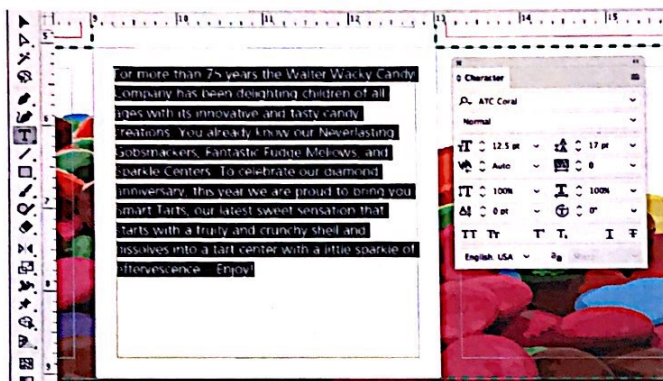 9 10 11 12 13 14 15
5
6
7
8
9
For more than 75 years the Walter Wacky Candy
Company has been delighting children of all
ages with its innovative and tasty candy
creations. You already know our Neverlasting
Gobsmackers, Fantastic Fudge Mellows, and
Sparkle Centers. To celebrate our diamond
anniversary, this year we are proud to bring you
Smart Tarts, our latest sweet sensation that
starts with a fruity and crunchy shell and
dissolves into a tart center with a little sparkle of
effervescence... Enjoy!
Character
ATC Coral
Normal
12.5 pt 17 pt
Auto 0
100% 100%
0 pt 0°
English: USA